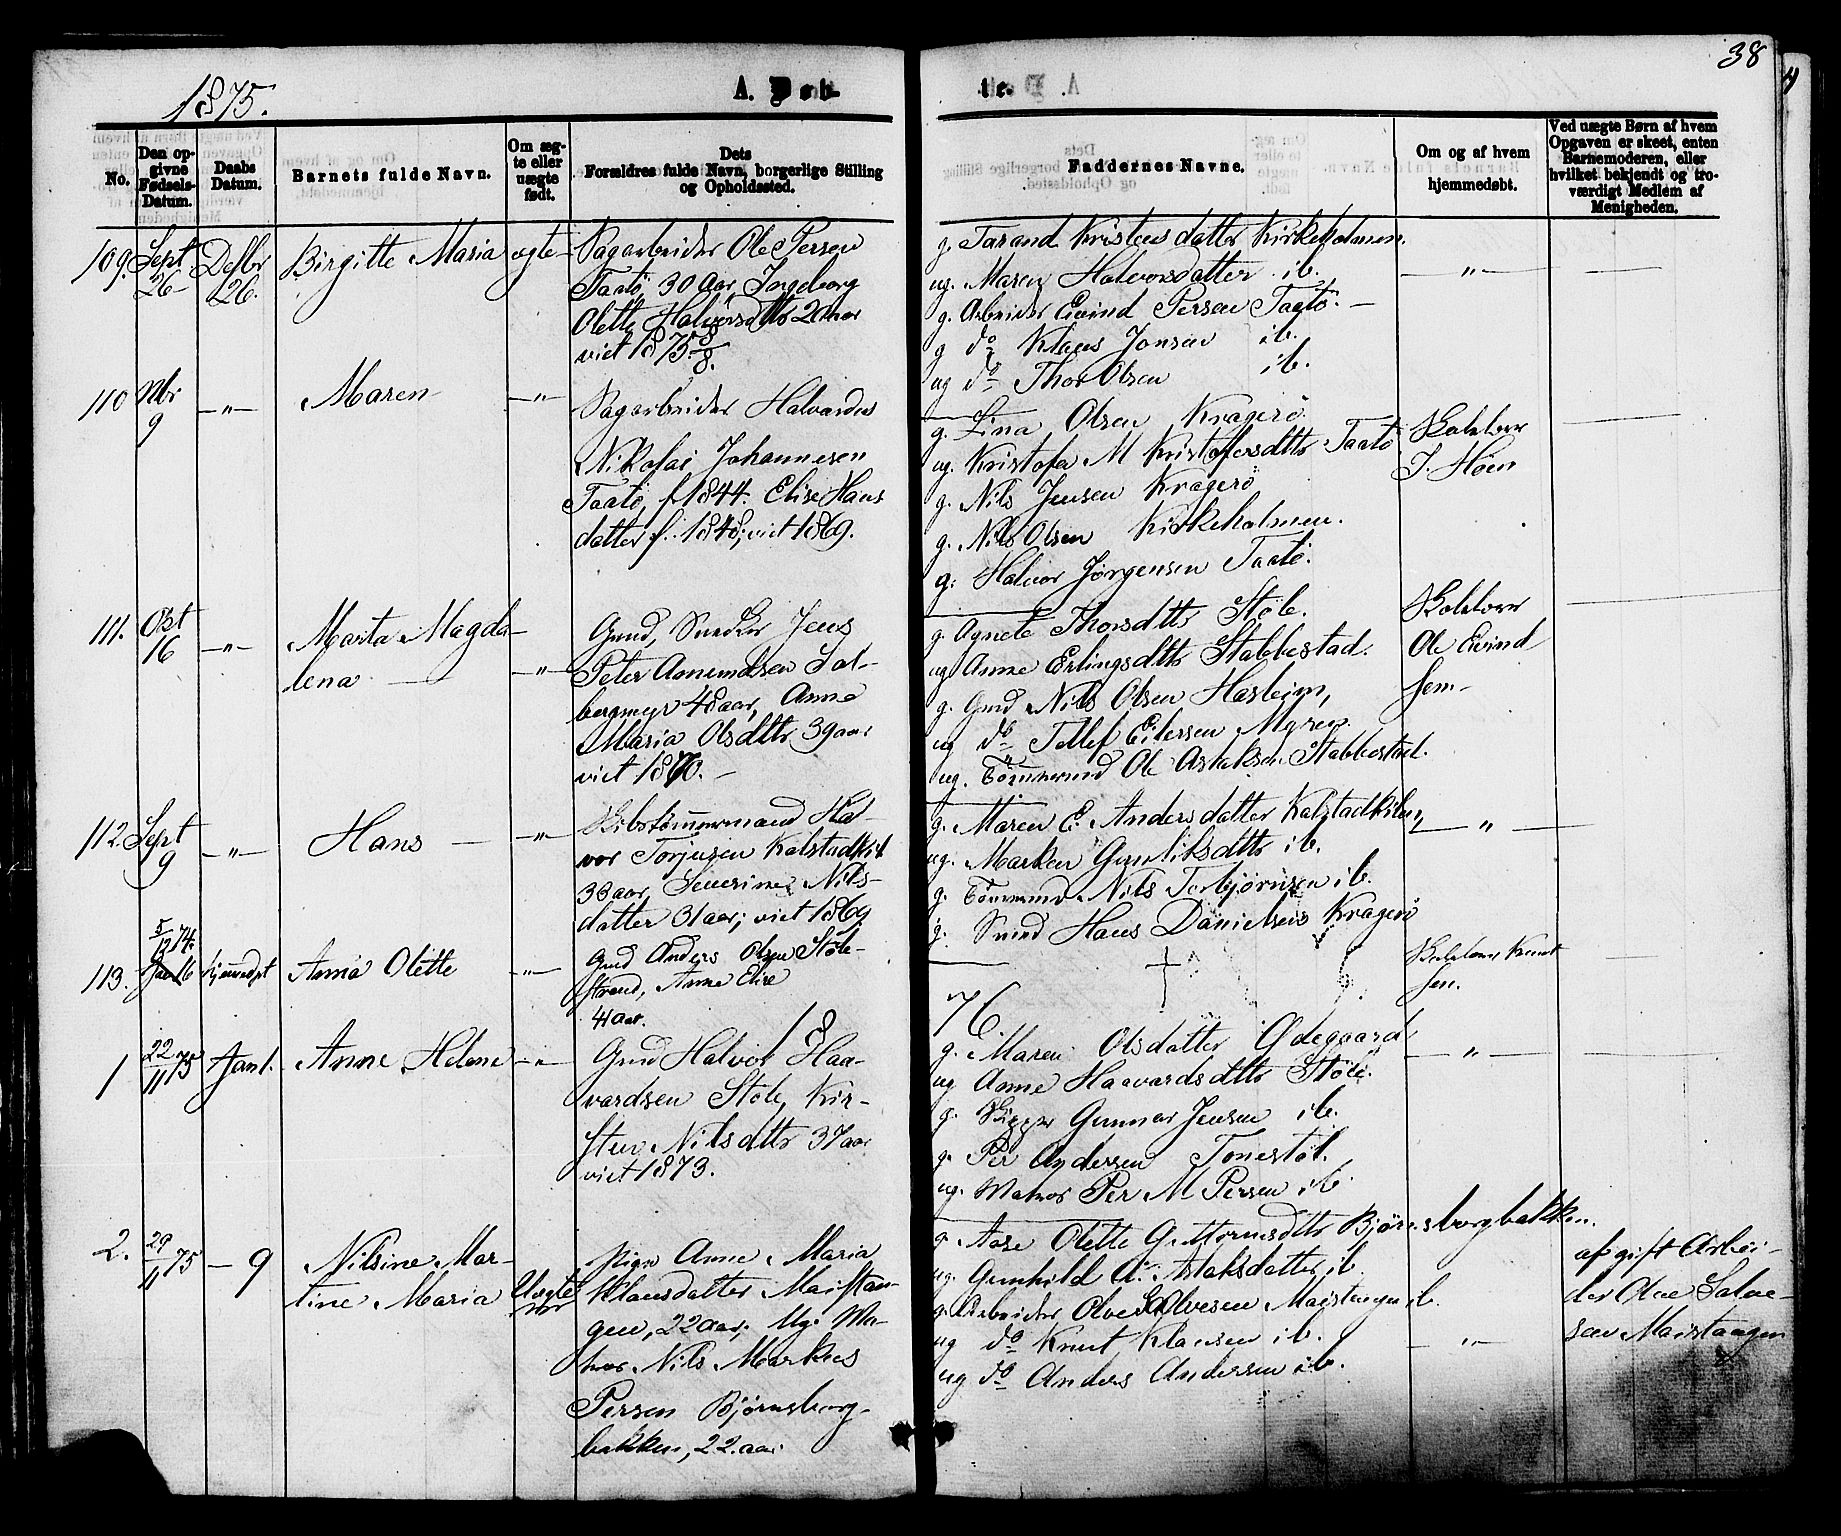 1875.
A. Døb-
te.
38
No.
Den op-
givne
Fødsels-
Datum.
Daabs
Datum.
Barnets fulde Navn.
Om æg-
te eller
uægte
født.
Dets
Forældres fulde Navn, borgerlige Stilling
og Opholdssted.
Faddernes Navne.
Om og af hvem
hjemmedøbt.
Ved uægte Børn af hvem
Opgaven er skeet, enten
Barnemoderen, eller
hvilket bekjendt og tro-
værdigt Medlem af
Menigheden.
109. Sept 26 Desbr 26. Birgitte Maria ægte
Sagarbeider Ole Persen
Taatö 30 Aar Ingeborg
Olette Halvorsdtr 20 aar
viet 1875 8/8.
g. Tarand Kristensdatter Kirkeholmen.
ug. Maren Halvorsdatter ib.
g. Arbeider Eivind Persen Taatö.
g do Klaus Jonsen ib.
ug do Thor Olsen ib.
110 Nbr 9 -"- Maren -"-
Sagarbeider Halvardus
Nikolai Johannesen
Taatö, f. 1844. Elise Hans
datter f. 1848; viet 1869.
g. Lina Olsen Kragerö
ug. Kristofa M Kristofersdtr Taatö
g. Nils Jensen Kragerö
g. Nils Olsen Kirkeholmen.
g. Halvor Jørgensen Taatö.
Skolelærer
T. Höen
111. Okt 16 -"- Marta Magda-
lena -"-
Gmd, Snedker Jens
Peter Anmundsen Sol-
bergmyr 48 aar, Anne
Maria Olsdtr 39 aar
viet 1870.
g. Agnete Thorsdtr Støle.
ug Anne Erlingsdtr Stabbestad.
g. Gmd Nils Olsen Hasleim,
ug do Tellef Eilersen Myren.
ug. Tömmermd Ole Aslaksen Stabbestad.
Skolelærer
Ole Eivind
sen
112 Sept 9 -"- Hans -"-
Skibstömmermand Hal-
vor Torjusen Kalstadkil
33 aar, Severine Nils-
datter 31 aar; viet 1869
g. Maren E. Andersdatter Kalstadkilen
ug. Marken Gunliksdtr ib.
g. Tömmermd Nils Torbjörnsen ib.
g. Smed Hans Danielsen Kragerö
-"-
113. 5/12 74. Jan 16 hjemmedpt Anna Olette -"-
Gmd Anders Olsen Støle-
strand, Anne Elise
41 aar.
Skolelærer Knut
sen.
18
76
1 22/11 75 Jan 1. Anne Helene -"-
Gmd Halvor Haa-
vardsen Støle, Kir-
sten Nilsdtr 37 aar
viet 1873.
g. Maren Olsdatter Ødegaard
ug Anne Haavardsdtr Støle.
g. Skipper Gunnar Jensen ib.
g. Per Andersen Tonestöl.
ug. Matros Per M Persen ib.
-"-
2. 29/11 75 - 9 Nilsine Mar-
tine Maria Uægte
Pigen Anne Maria
Klausdatter Maistan-
gen, 22 aar; Ug. Ma-
tros Nils Markus
Persen Björnsborg-
bakken, 22 aar.
g Aase Olette G. Mornsdtr Björnsborgbakken.
ug. Gunhild A. Aslaksdatter ib.
g. Arbeider Olve Olvesen Maistangen ib.
ug do Knut Klausen ib.
ug do Anders Andersen ib.
-"-
af gift Arbei-
der Olve Salve-
sen Maistangen